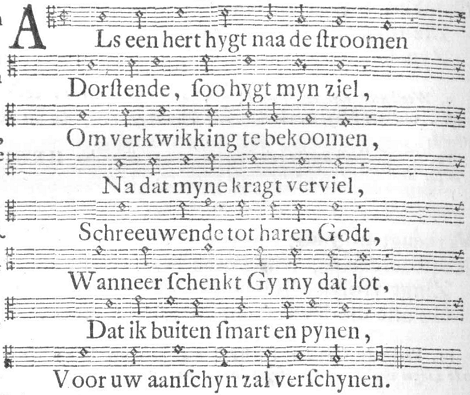 ALs een hert hygt naa de ſtroomen
Dorſtende, ſoo hygt myn ziel,
Om verkwikking te bekoomen,
Na dat myne kragt verviel,
Schreeuwende tot haren Godt,
Wanneer ſchenkt Gy my dat lot,
Dat ik buiten ſmart en pynen,
Voor uw aanſchyn zal verſchynen.